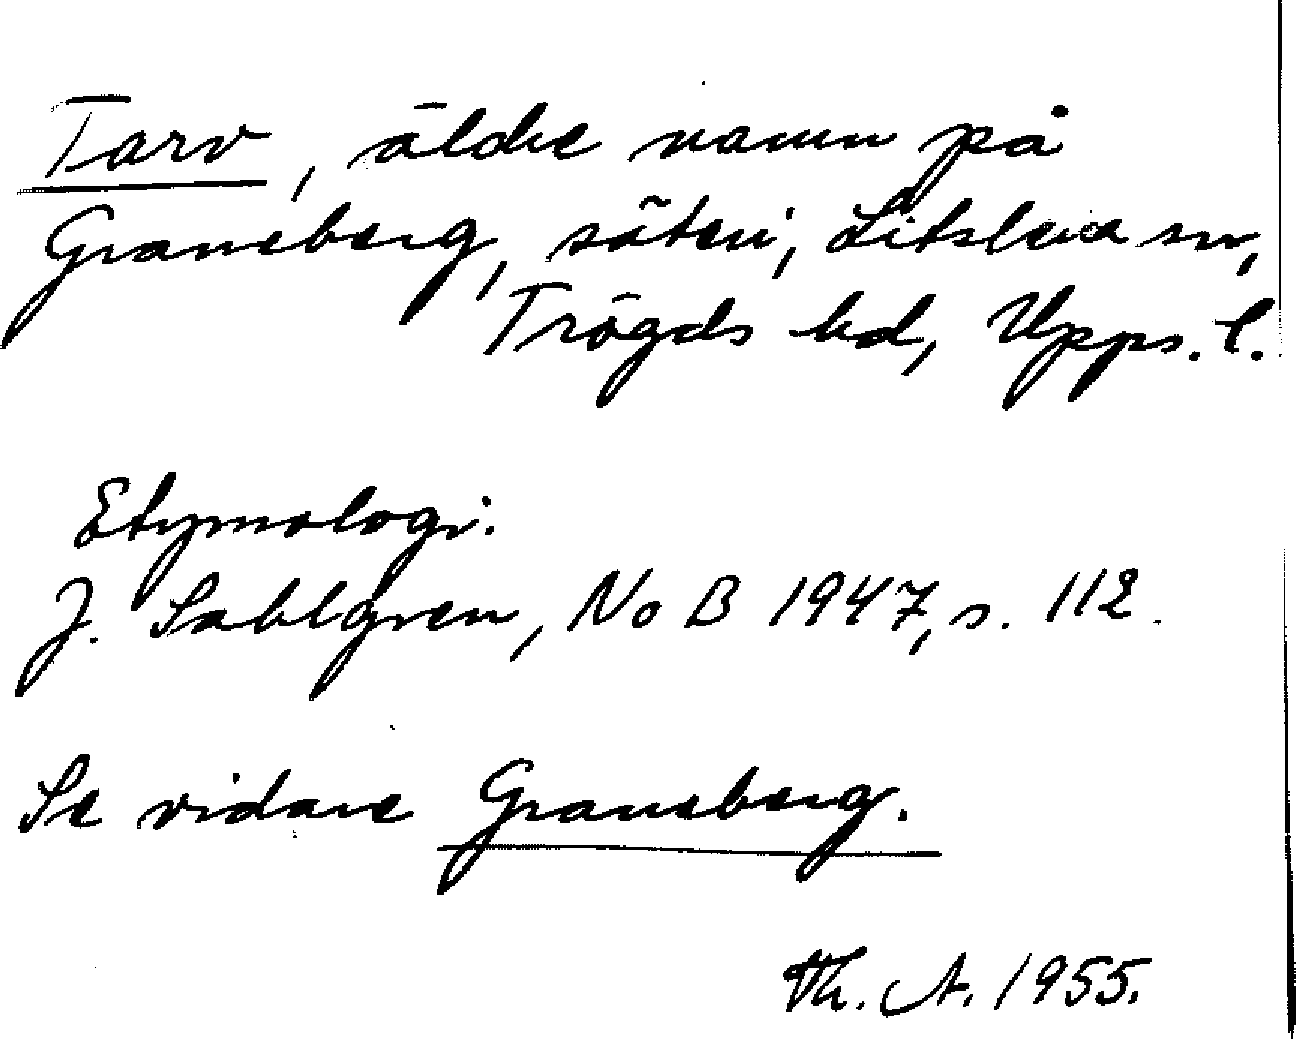 Tarv, äldre namn på
Graneberg, säteri, Litslena sn,
Trögds hd, Upps. l.
Etymologi.
J. Sahlgren, NoB 1947, s. 112.
Se vidare Graneberg.
Th. A. 1955.